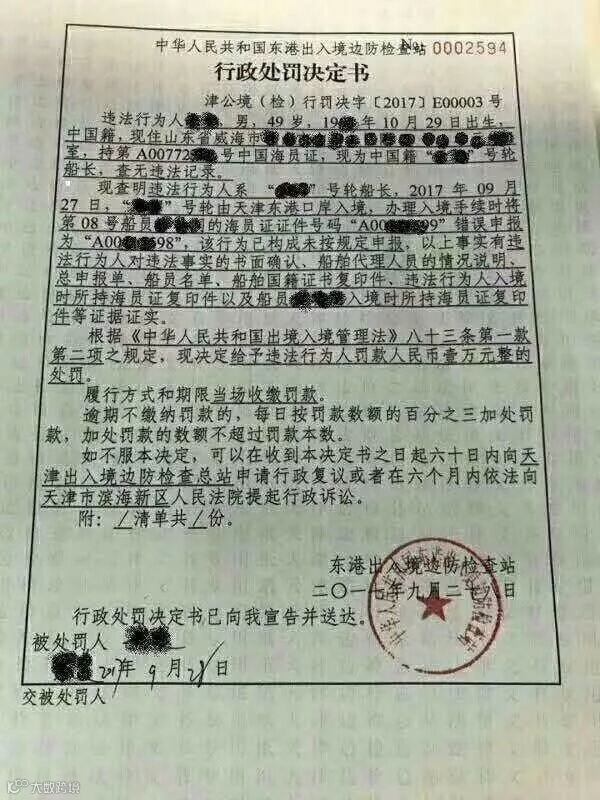 中华人民共和国东港出入境边防检查站 No 0002594
行政处罚决定书
津公境（检）行罚决字〔2017〕E00003 号
违法行为人，男，49 岁，19 年 10 月 29 日出生，
中国籍，现住山东省威海市
室，持第 A00772 号中国海员证，现为中国籍“ ”号轮
船长，查无违法记录。
现查明违法行为人系“ ”号轮船长，2017 年 09 月
27 日，“ ”号轮由天津东港口岸入境，办理入境手续时将
第 08 号船员 的海员证证件号码“A00 99”错误申报
为“A00 98”，该行为已构成未按规定申报，以上事实有违
法行为人对违法事实的书面确认、船舶代理人员的情况说明、
总申报单、船员名单、船舶国籍证书复印件、违法行为人入境
时所持海员证复印件以及船员 入境时所持海员证复印
件等证据证实。
根据《中华人民共和国出境入境管理法》八十三条第一款
第二项之规定，现决定给予违法行为人罚款人民币壹万元整的
处罚。
履行方式和期限当场收缴罚款。
逾期不缴纳罚款的，每日按罚款数额的百分之三加处罚
款，加处罚款的数额不超过罚款本数。
如不服本决定，可以在收到本决定书之日起六十日内向天
津出入境边防检查总站申请行政复议或者在六个月内依法向
天津市滨海新区人民法院提起行政诉讼。
附：/清单共/份。
东港出入境边防检查站
二〇一七年九月二十 日
行政处罚决定书已向我宣告并送达。
被处罚人
2017年 9 月 28 日
交被处罚人
大数跨境